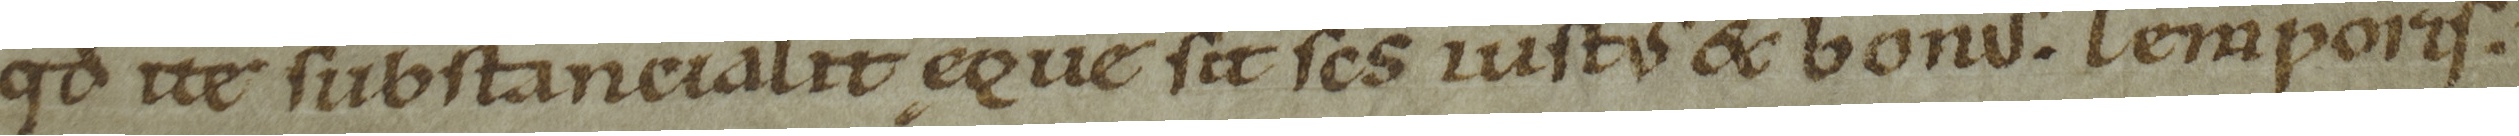 qd ite substancialit ęque sit scs iustus & bonus. Temporis.